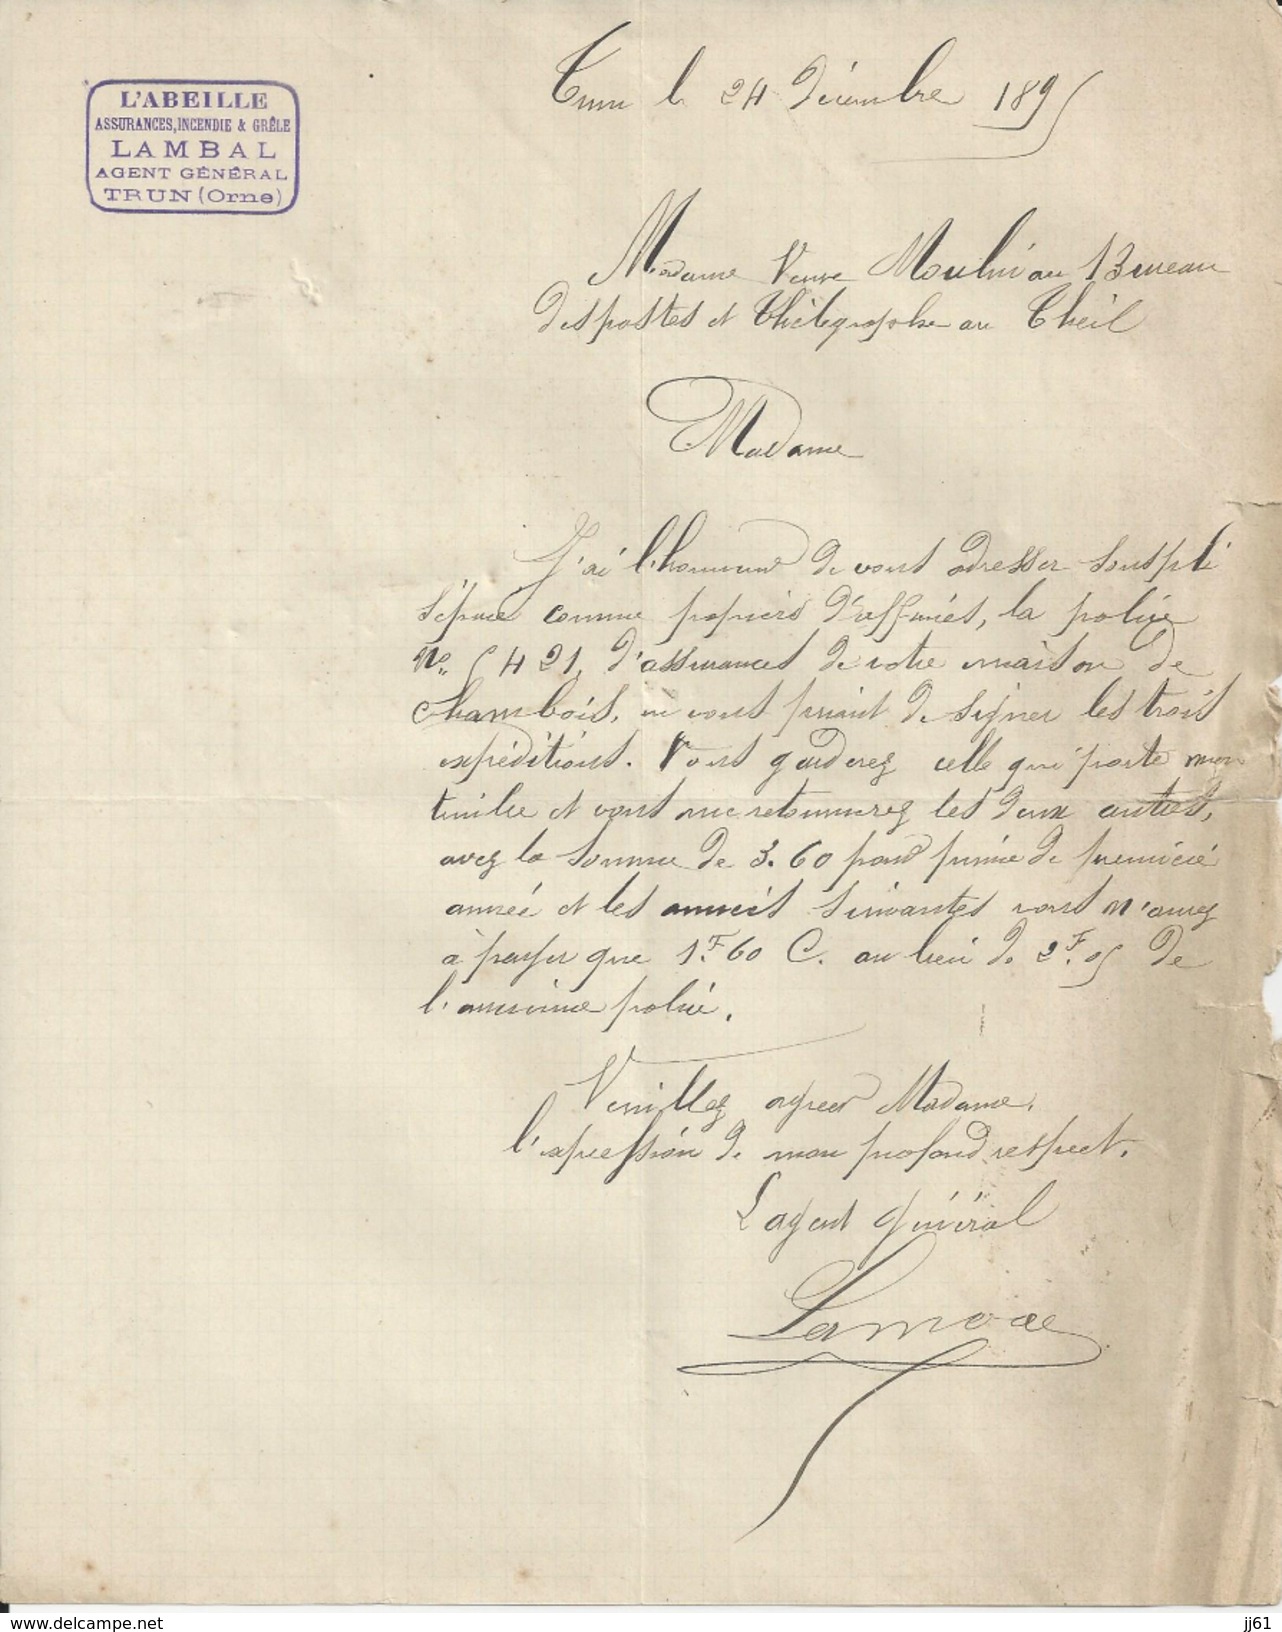 L'ABEILLE
ASSURANCES, INCENDIE & GRÊLE
LAMBAL
AGENT GÉNÉRAL
TRUN (Orne)
Trun le 24 Décembre 1895
Madame Veuve Moulin au Bureau
des postes et Thélégraphe au Theil
Madame
J'ai l'honneur de vous adresser sous pli
séparé comme papiers d'affaires, la police
No. 5421, d'assurances de votre maison de
Chambois, en vous priant de signer les trois
expéditions. Vous garderez celle qui porte mon
timbre et vous me retournerez les deux autres,
avez la somme de 3.60 pour prime de première
année et les années suivantes vous n'aurez
à payer que 1F.60 C. au lieu de 2F.05 de
l'ancienne police.
Veuillez agréer Madame,
l'expression de mon profond respect.
L'agent général
Lambal
delcampe.net
jj61